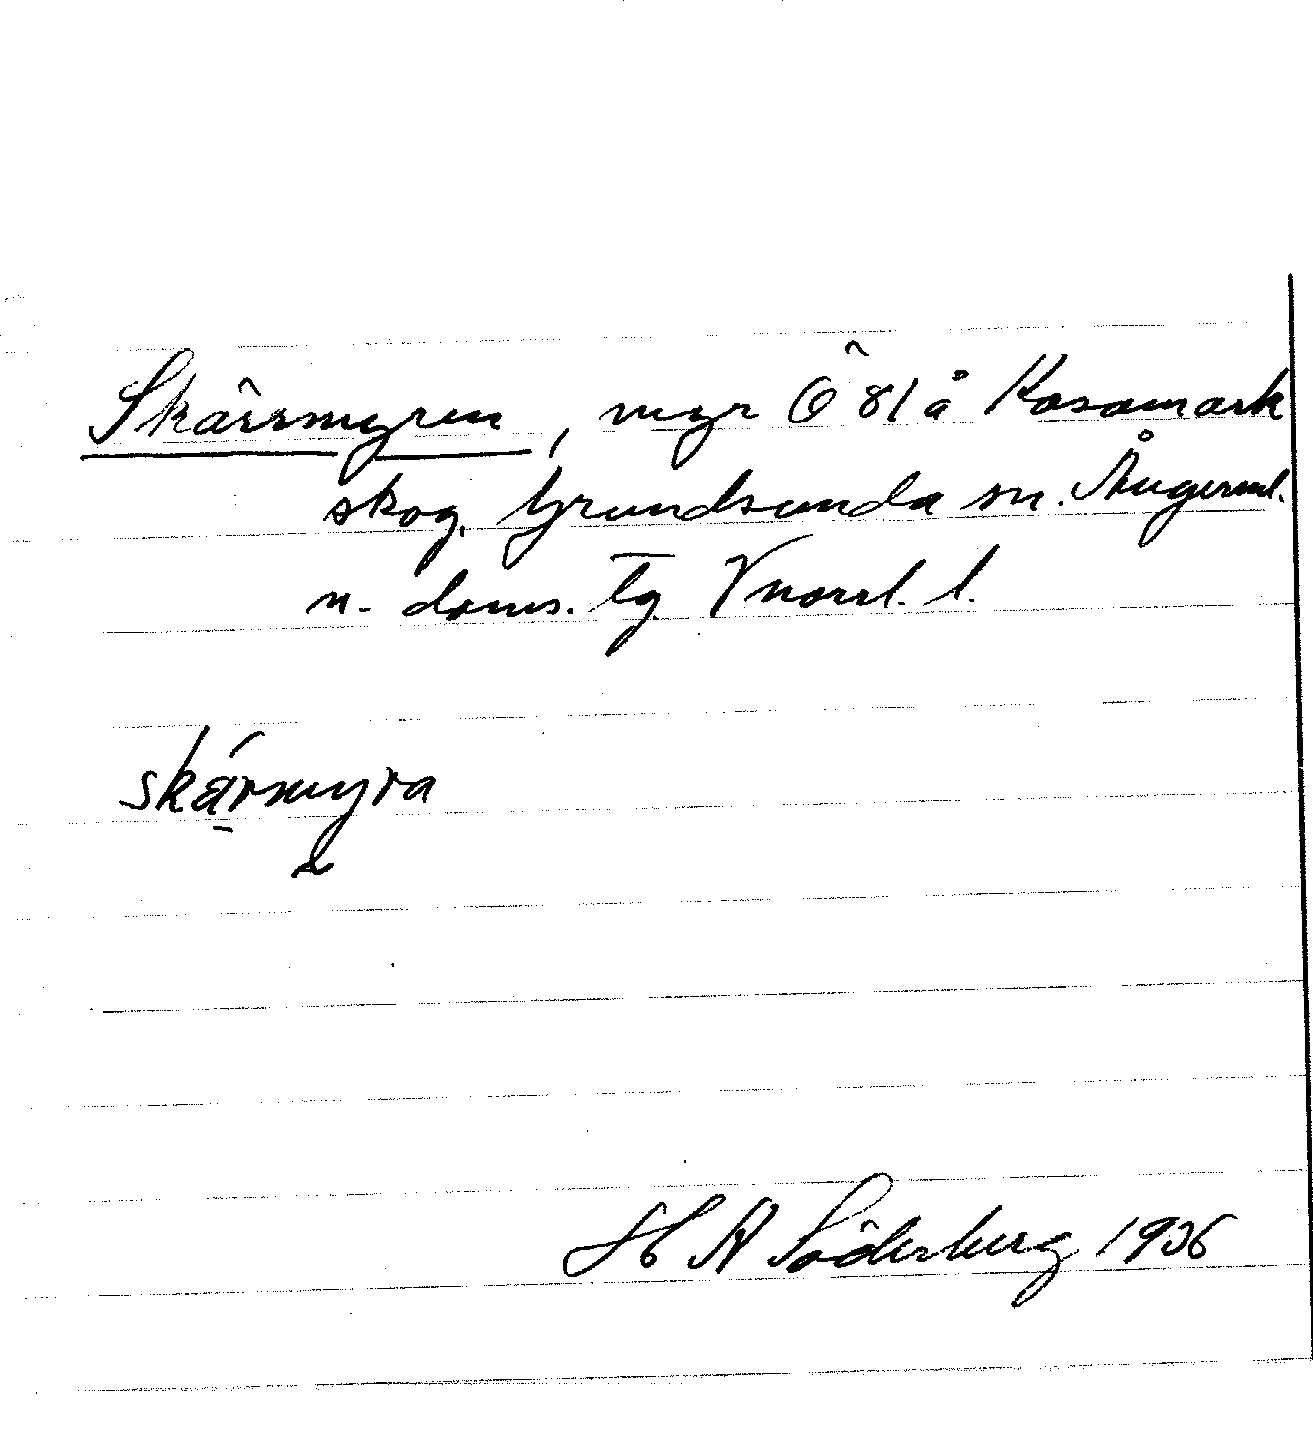 Skärsmyren, myr Ö 81 å Kasamark
skog, Grundsunda sn. Ångerml.
n. doms. tg. Vnorrl. l.
skärmyra
H A Söderberg 1936